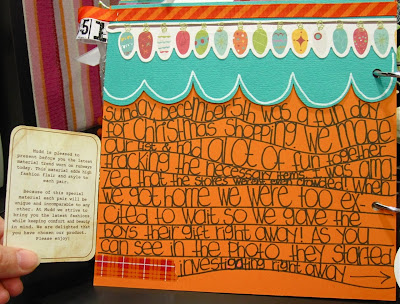 51
Mudd is pleased to
present before you the latest
material trend worn on runways
today. This material adds high
fashion flair and style to
each pair.
Because of this special
material each pair will be
unique and incomparable to any
other. At Mudd we strive to
bring you the latest fashions
while keeping comfort and beauty
in mind. We are delighted that
you have chosen our product.
Please enjoy!
Sunday, december 5th was a fun day
for Christmas shopping. we made
a list and had a lot of fun
tracking the
when
we got home there was no
need to wait. we gave the
boys their gift right away. as you
can see in the photo they started
investigating right away